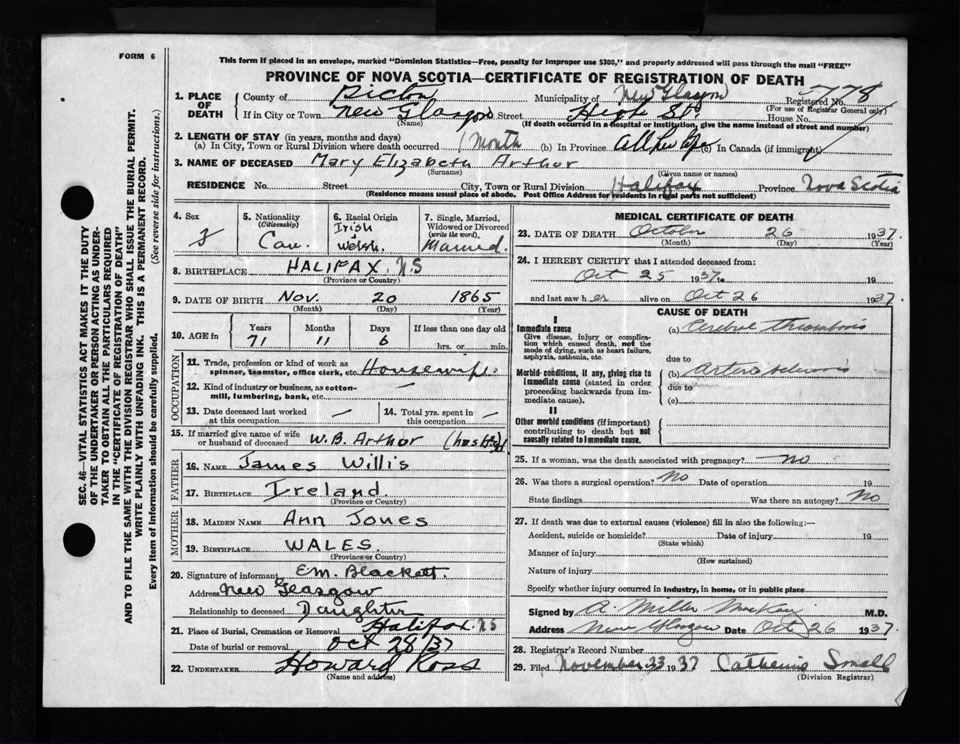 FORM 6
This form if placed in an envelope, marked "Dominion Statistics—Free, penalty for improper use $300," and properly addressed will pass through the mail "FREE"
PROVINCE OF NOVA SCOTIA—CERTIFICATE OF REGISTRATION OF DEATH
1. PLACE OF DEATH
County of Pictou Municipality of New Glasgow Registered No. 778
(For use of Registrar General only)
If in City or Town New Glasgow Street High St House No.
(Name) (If death occurred in a hospital or institution, give the name instead of street and number)
2. LENGTH OF STAY (in years, months and days)
(a) In City, Town or Rural Division where death occurred 1 Month (b) In Province All her life (c) In Canada (if immigrant)
3. NAME OF DECEASED Mary Elizabeth Arthur
(Surname) (Given name or names)
RESIDENCE No. Street City, Town or Rural Division Halifax Province Nova Scotia
(Residence means usual place of abode. Post Office Address for residents in rural parts not sufficient)
4. Sex
F
5. Nationality
(Citizenship)
Can.
6. Racial Origin
Irish
Welsh.
7. Single, Married, Widowed or Divorced
(write the word.)
Married.
8. BIRTHPLACE HALIFAX. N.S
(Province or Country)
9. DATE OF BIRTH Nov. 20 1865
(Month) (Day) (Year)
10. AGE in
Years Months Days If less than one day old
71 11 6 hrs. or min.
OCCUPATION
11. Trade, profession or kind of work as spinner, teamster, office clerk, etc. Housewife.
12. Kind of industry or business, as cotton-mill, lumbering, bank, etc. —
13. Date deceased last worked at this occupation —
14. Total yrs. spent in this occupation —
15. If married give name of wife or husband of deceased W.B. Arthur (husb'd)
FATHER
16. NAME James Willis
17. BIRTHPLACE Ireland.
(Province or Country)
MOTHER
18. MAIDEN NAME Ann Jones
19. BIRTHPLACE WALES.
(Province or Country)
20. Signature of informant E.M. Blackett.
Address New Glasgow
Relationship to deceased Daughter
21. Place of Burial, Cremation or Removal Halifax. N.S
Date of burial or removal Oct 28/37
22. UNDERTAKER Howard Ross
(Name and address)
MEDICAL CERTIFICATE OF DEATH
23. DATE OF DEATH October 26 1937.
(Month) (Day) (Year)
24. I HEREBY CERTIFY that I attended deceased from:
Oct 25 1937 to 19
and last saw her alive on Oct 26 1937
CAUSE OF DEATH
I
Immediate cause
Give disease, injury or complication which caused death, not the mode of dying, such as heart failure, asphyxia, asthenia, etc.
(a) Cerebral thrombosis
due to
Morbid conditions, if any, giving rise to immediate cause (stated in order proceeding backwards from immediate cause).
(b) Arteriosclerosis
due to
(c)
II
Other morbid conditions (if important) contributing to death but not causally related to immediate cause.
25. If a woman, was the death associated with pregnancy? no
26. Was there a surgical operation? No Date of operation 19
State findings Was there an autopsy? No
27. If death was due to external causes (violence) fill in also the following:—
Accident, suicide or homicide? Date of injury 19
(State which)
Manner of injury
(How sustained)
Nature of injury
Specify whether injury occurred in industry, in home, or in public place
Signed by A. Miller MacKay M.D.
Address New Glasgow Date Oct 26 1937.
28. Registrar's Record Number
29. Filed November 23 1937 Catherine Small
(Division Registrar)
SEC. 46—VITAL STATISTICS ACT MAKES IT THE DUTY
OF THE UNDERTAKER OR PERSON ACTING AS UNDER-
TAKER TO OBTAIN ALL THE PARTICULARS REQUIRED
IN THE "CERTIFICATE OF REGISTRATION OF DEATH"
AND TO FILE THE SAME WITH THE DIVISION REGISTRAR WHO SHALL ISSUE THE BURIAL PERMIT.
WRITE PLAINLY WITH UNFADING INK. THIS IS A PERMANENT RECORD.
Every item of information should be carefully supplied. (See reverse side for instructions.)